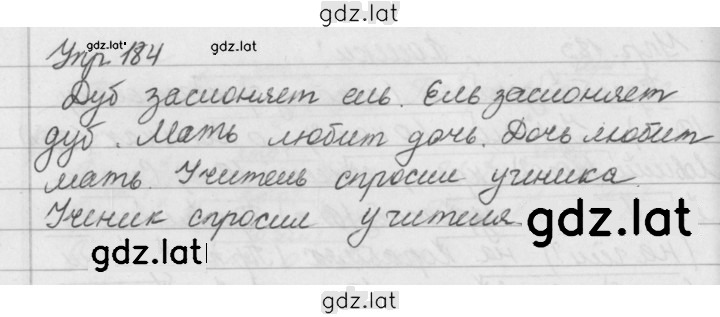 gdz.lat gdz.lat
Упр 184
Дуб заслоняет ель. Ель заслоняет
дуб. Мать любит дочь. Дочь любит
мать. Учитель спросил ученика.
Ученик спросил учителя. gdz.lat
gdz.lat
gdz.lat